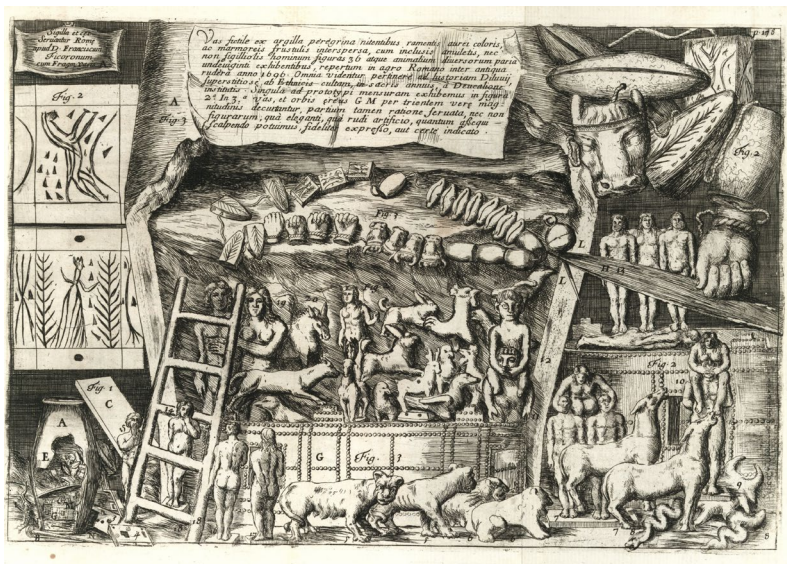 Sigilla et
Servantur Romę
apud D. Franciscum
Ficoronum
cum Fragm. Vasis
p. 148
Vas fictile ex argilla peregrina nitentibus ramentis aurei coloris,
ac marmoreis frustulis interspersa, cum inclusis amuletis, nec
non sigilliolis hominum figuras 36 atque animalium diversorum paria
undeviginti exhibentibus, repertum in agro Romano inter antiqua
rudera anno 1696. Omnia videntur pertinere ad historiam Diluvij
superstitiose ab Ethnicis cultam, in sacris annuis, à Deucalione
institutis. Singula ad prototypi mensuram exhibemus in figura
2.ª In 3.ª Vas, et orbis ęreus G M per trientem verę mag-
nitudinis decurtantur, partium tamen ratione servata, nec non
figurarum, quà eleganti, quà rudi artificio, quantum assequi
scalpendo potuimus, fideliter expressio, aut certe indicato.
A
Fig. 3
Fig. 2
Fig. 2
Fig. 3
L
L
11 12
2
Fig. 2
10
Fig. 1
C
A
E
13
14
G Fig. 3
9
18
7
8
8